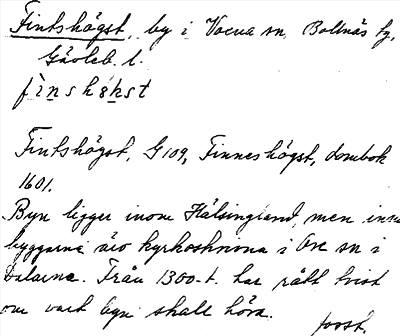 Fintshögst, by i Voxna sn, Bollnäs tg,
Gävleb. l.
fìnshøkst
Fintshögst, G 109, Finneshögst, dombok
1601.
Byn ligger inom Hälsingland, men inne
byggarna äro kyrkoskrivna i Ore sn i
Dalarna. Från 1300-t. har rått tvist
om vart byn skall höra.